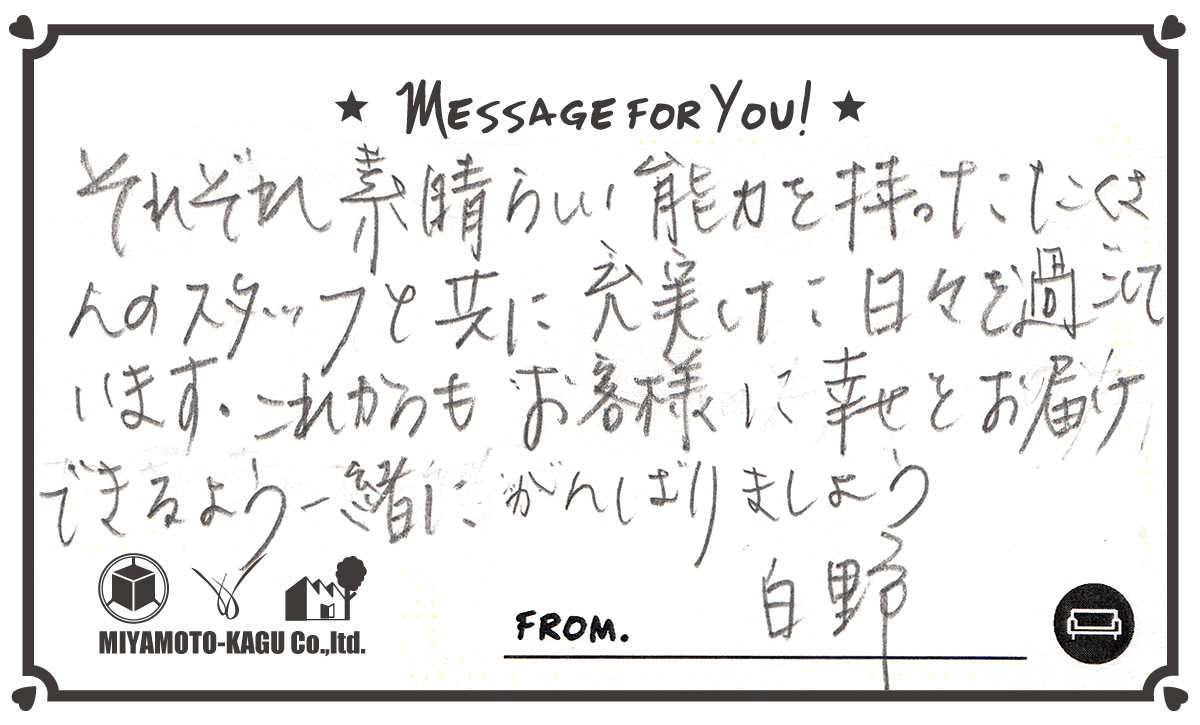 ★ MESSAGE FOR YOU! ★
それぞれ素晴らしい能力を持ったたくさ
んのスタッフと共に充実した日々を過ごして
います。これからもお客様に幸せをお届け
できるよう一緒にがんばりましょう
白野
FROM.
MIYAMOTO-KAGU Co.,ltd.